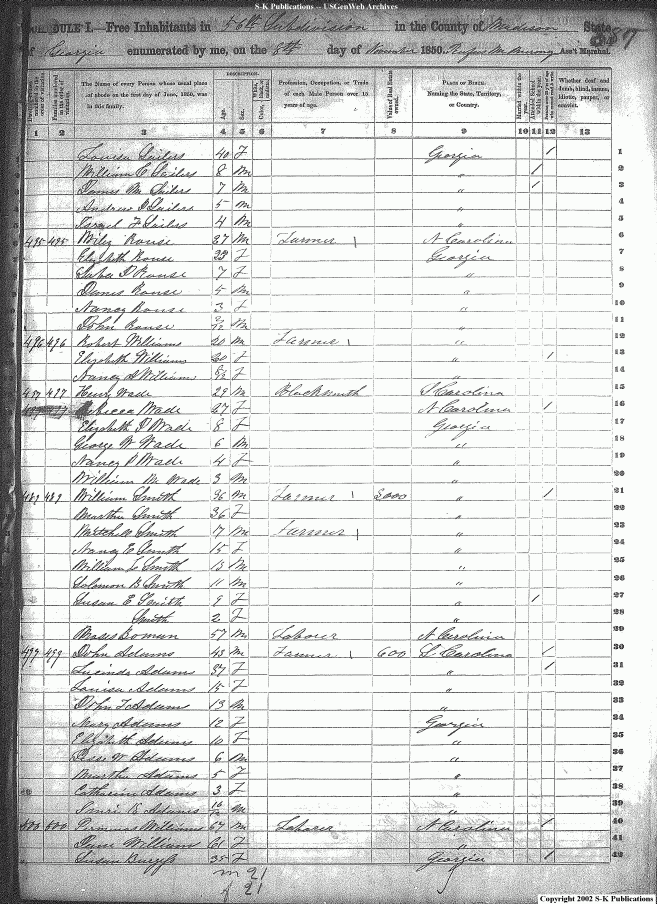 S-K Publications -- USGenWeb Archives
DULE I.-Free Inhabitants in 56th Subdivision in the County of Madison State
of Georgia enumerated by me, on the 8th day of November 1850. Ass't Marshal.
DESCRIPTION.
The Name of every Person whose usual place of abode on the first day of June, 1850, was in this family.
Age
Sex
Profession, Occupation, or Trade of each Male Person over 15 years of age.
Value of Real Estate owned.
PLACE OF BIRTH. Naming the State, Territory, or Country.
Whether deaf and dumb, blind, insane, idiotic, pauper, or convict.
1 2 3 4 5 6 7 8 9 10 11 12 13
Louisa Sailers 40 F Georgia / 1
William C Sailers 8 M " / 2
James M Sailers 7 M " / 3
Andrew Sailers 5 M " 4
Israel F Sailers 4 M " 5
495 495 Wiley Rouse 27 M Farmer N Carolina 6
Elizabeth Rouse F Georgia 7
D Rouse 7 F " 8
James Rouse 5 M " 9
Nancy Rouse 3 F " 10
John Rouse M " 11
496 496 Robert Williams 20 M Farmer " 12
Elizabeth Williams 20 F " / 13
Nancy William F " 14
497 497 Henry Wade 29 M Blacksmith S Carolina 15
Rebecca Wade 27 F N Carolina / 16
Elizabeth P Wade 8 F Georgia 17
George W Wade 6 M " 18
Nancy P Wade 4 F " 19
William M Wade 3 M " 20
William Smith 36 M Farmer 3,000 " / 21
Martha Smith 36 F " 22
Smith 17 M Farmer " 23
Nancy E Smith 15 F " 24
William Smith 13 M " 25
Solomon B Smith 11 M " 26
Susan E Smith 9 F " / 27
Smith 2 F " 28
Moses Boman 57 M Laborer N Carolina 29
499 499 John Adams 43 M Farmer 600 S Carolina / 30
Lucinda Adams 37 F " / 31
Louisa Adams 15 F " 32
John F Adams 13 M " 33
Mary Adams 12 F Georgia 34
Elizabeth Adams 10 F " 35
Jesse W Adams 6 M " 36
Martha Adams 5 F " 37
Catharine Adams 3 F " 38
Adams M " 39
500 500 Williams 67 M Laborer N Carolina / 40
Jane William 61 F " 41
Susan Burgess 35 F Georgia / 42
m 21
f 21
Copyright 2002 S-K Publications